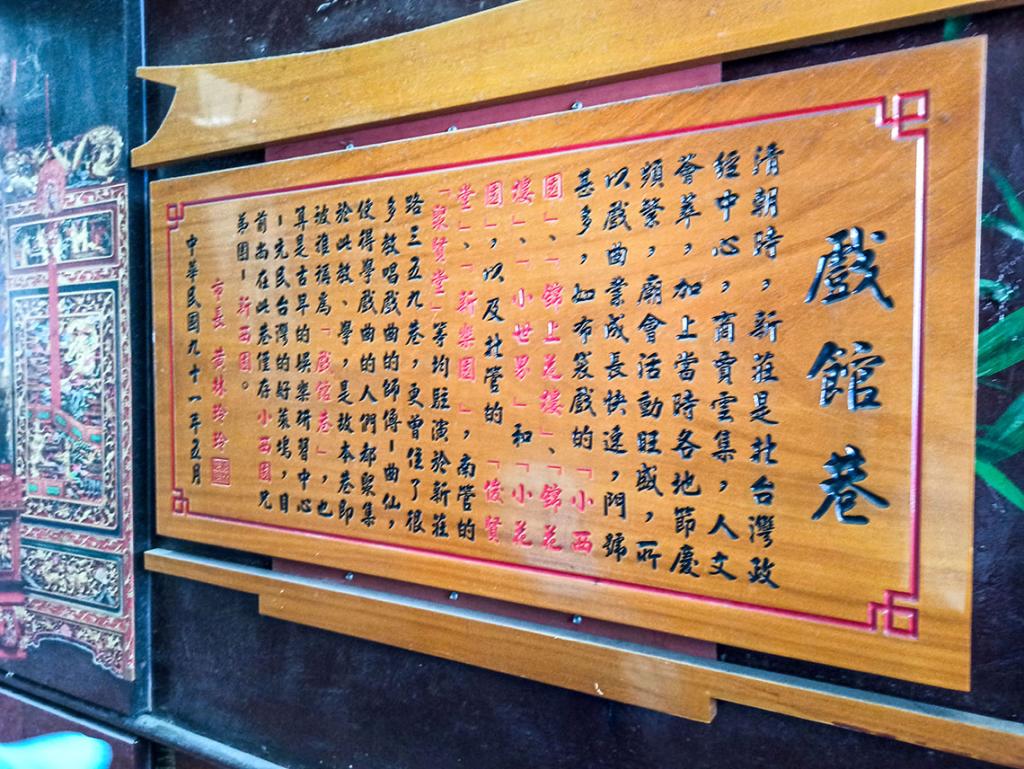 戲館巷
清朝時，新莊是北台灣政
經中心，商賈雲集，人文
薈萃，加上當時各地節慶
頻繁，廟會活動旺盛，所
以戲曲業成長快速，門號
甚多，如布袋戲的「小西
園」、「錦上花樓」、「錦花
樓」、「小世界」和「小花
園」，以及北管的「俊賢
堂」、「新樂園」，南管的
「聚賢堂」等均駐演於新莊
路三五九巷，更曾住了很
多教唱戲曲的師傅－曲仙，
使得學戲曲的人們都聚集
於此教、學，是故本巷即
被雅稱為「戲館巷」，也
算是古早的娛樂研習中心
－充民台灣的好萊塢，目
前尚在此巷僅存小西園兄
弟團－新西園。
市長 黃林玲玲
中華民國九十一年五月